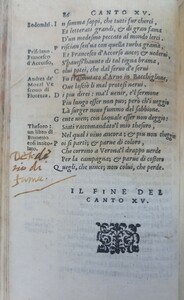 86 CANTO XV.
In somma sappi, che tutti fur cherci,
Et letterati grandi, & di gran fama
D'un medesmo peccato al mondo lerci.
Priscian sen va con quella turba grama,
Et Francesco d'Accorso anco; & vedervi,
S'havessi havuto di tal tigna brama,
Colui potei, che dal servo de' servi
Fu trasmutato d'Arno in Bacchiglione,
Ove lasciò li mal protesi nervi.
Di piu direi: ma'l venir, e'l sermone
Piu lungo esser non può; però ch'i veggio
Là surger nuovo fumo dal sabbione.
Gente vien, con laquale esser non deggio:
Siati raccomandato il mio thesoro,
Nel qual i vivo ancora; & piu non cheggio
Poi si partì; & parve di coloro,
Che corrono a Verona'l drappo verde
Per la campagna; & parve di costoro
Quegli, che vince; non colui, che perde.
Priscianо,
Francesco
d'Accorso,
Andrea de'
Mozzi Ve
scovo di
Fiorenza,
Thesoro;
un libro di
Brunetto
IL FINE DEL
CANTO XV.